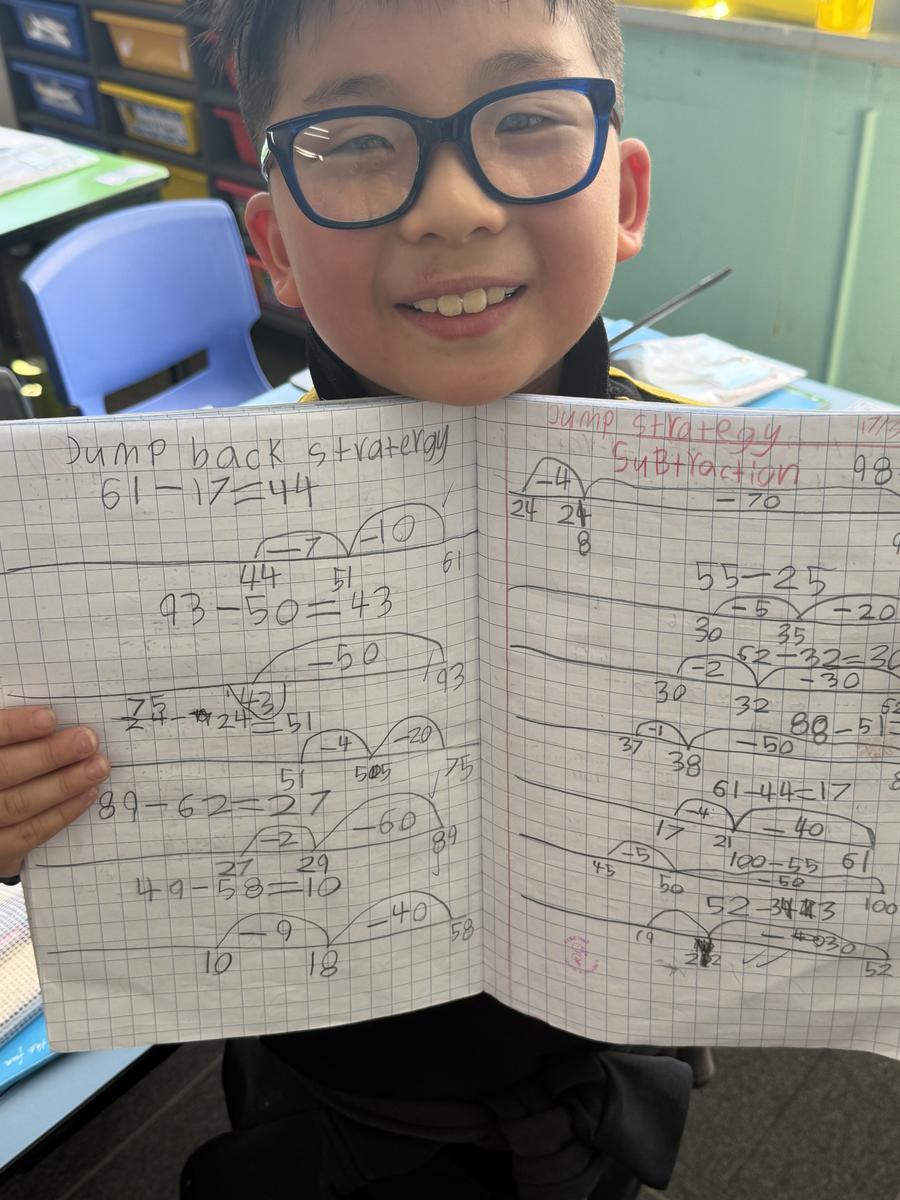 Jump back stratergy
61-17=44
-7 -10
44 51 61
93-50=43
-50
43 93
75
24=51
-4 -20
51 55 75
89-62=27
-2 -60
27 29 89
49-58=10
-9 -40
10 18 58
Jump strategy 17/3
SuBtraction 98-
-4 -70
24 28
8
55-25
-5 -20
30 35
62-32=30
-2 -30
30 32 62
88-51=
-1 -50
37 38 8
61-44=17
-4 -40
17 21 61
100-55
-5 -50
45 50 100
52-
30
19 22 52